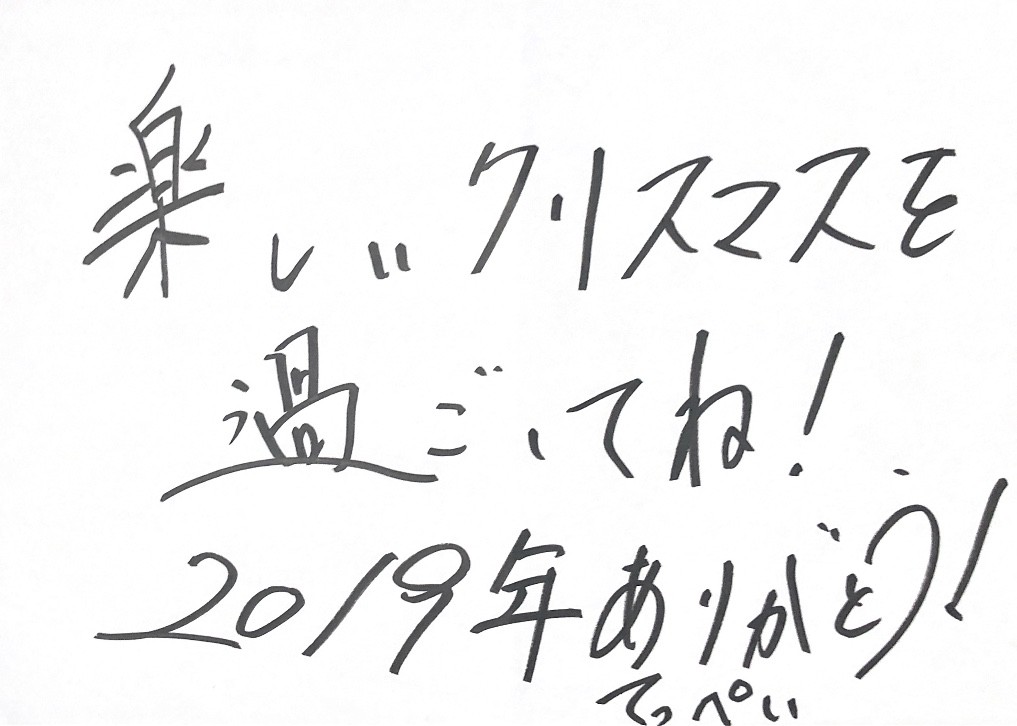 楽しいクリスマスを
過ごしてね!
2019年ありがとう!
てっぺい